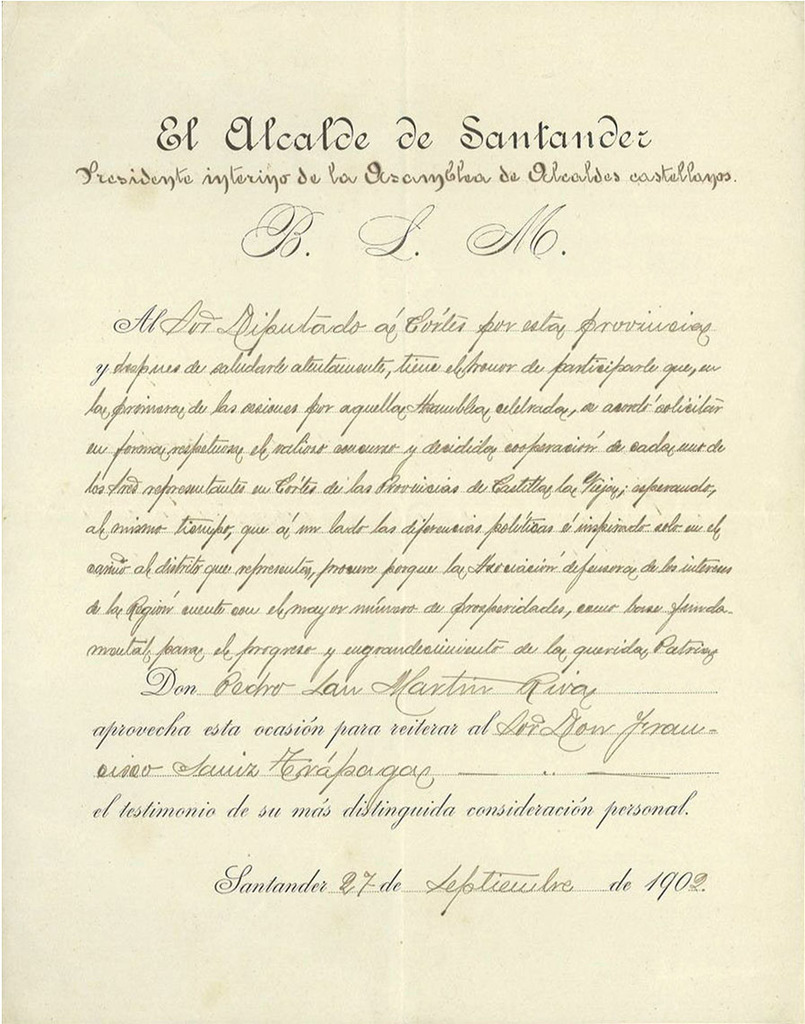 El Alcalde de Santander
Presidente interino de la Asamblea de Alcaldes castellanos.
B. L. M.
Al Sor Diputado á Córtes por esta provincia
y despues de saludarle atentamente, tiene el honor de participarle que, en
la primera de las sesiones por aquella Asamblea celebrada, se acordó solicitar
en forma respetuosa el valioso concurso y decidida cooperación de cada uno de
los Sres representantes en Córtes de las Provincias de Castilla la Vieja; esperando,
al mismo tiempo, que á un lado las diferencias políticas é inspirado solo en el
al distrito que representa, procure porque la Asociación defensora de los intereses
de la Región cuente con el mayor número de prosperidades, como base funda-
mental para el progreso y engrandecimiento de la querida Patria
Don Pedro San Martin Riva
aprovecha esta ocasión para reiterar al Sor Don Fran-
cisco Sainz Trápaga
el testimonio de su más distinguida consideración personal.
Santander 27 de Septiembre de 1902.